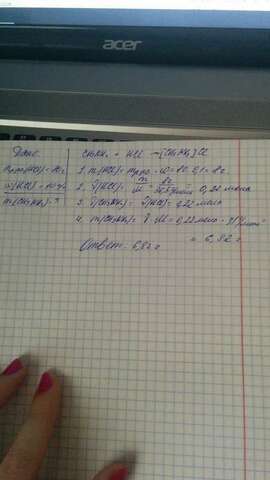 acer
Дано:
CH3NH2 + HCl → [CH3NH3]Cl
1. m(HCl) = mр-ра · ω = 80 · 0,1 = 8 г
2. ν(HCl) = m/M = 8г / 36,5 г/моль = 0,22 моль
3. ν(CH3NH2) = ν(HCl) = 0,22 моль
4. m(CH3NH2) = ν · M = 0,22 моль · 31 г/моль =
= 6,82 г
Ответ: 6,82 г
m(CH3NH2) - ?